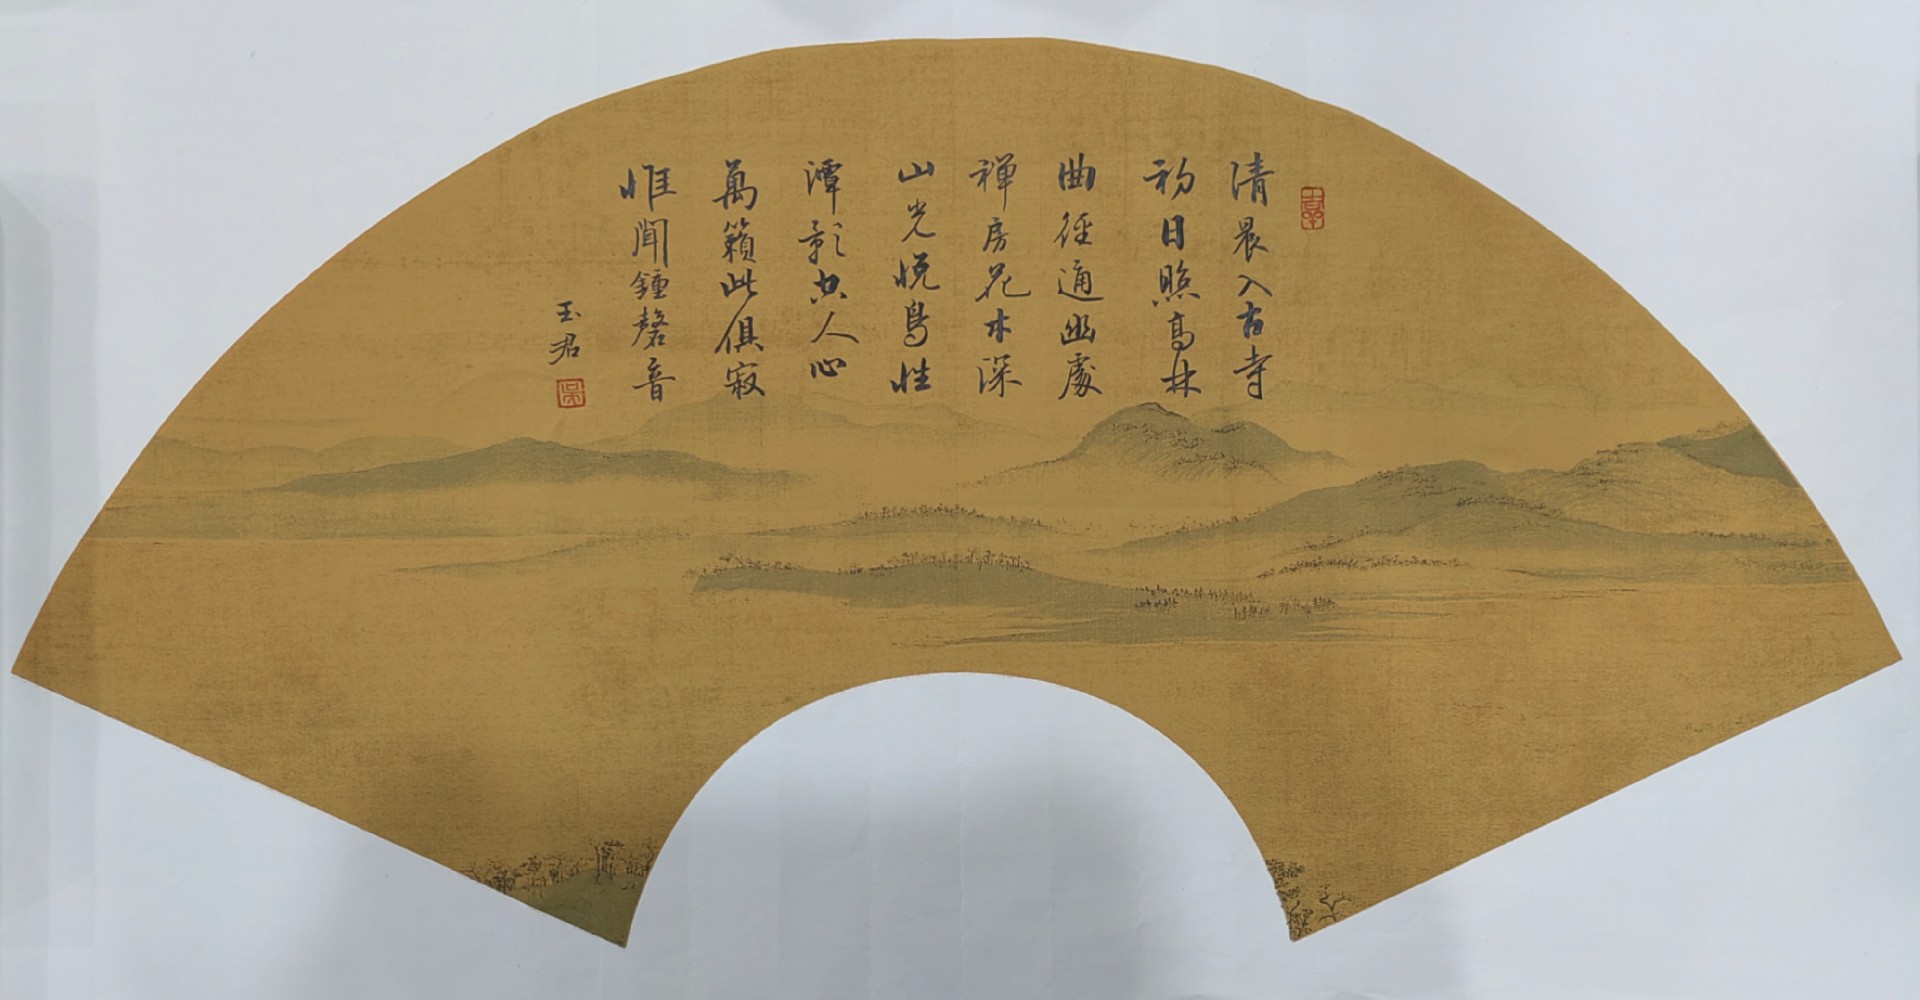 清晨入古寺
初日照高林
曲径通幽處
禅房花木深
山光悅鳥性
潭影空人心
萬籟此俱寂
惟聞鍾磬音
玉君
吴